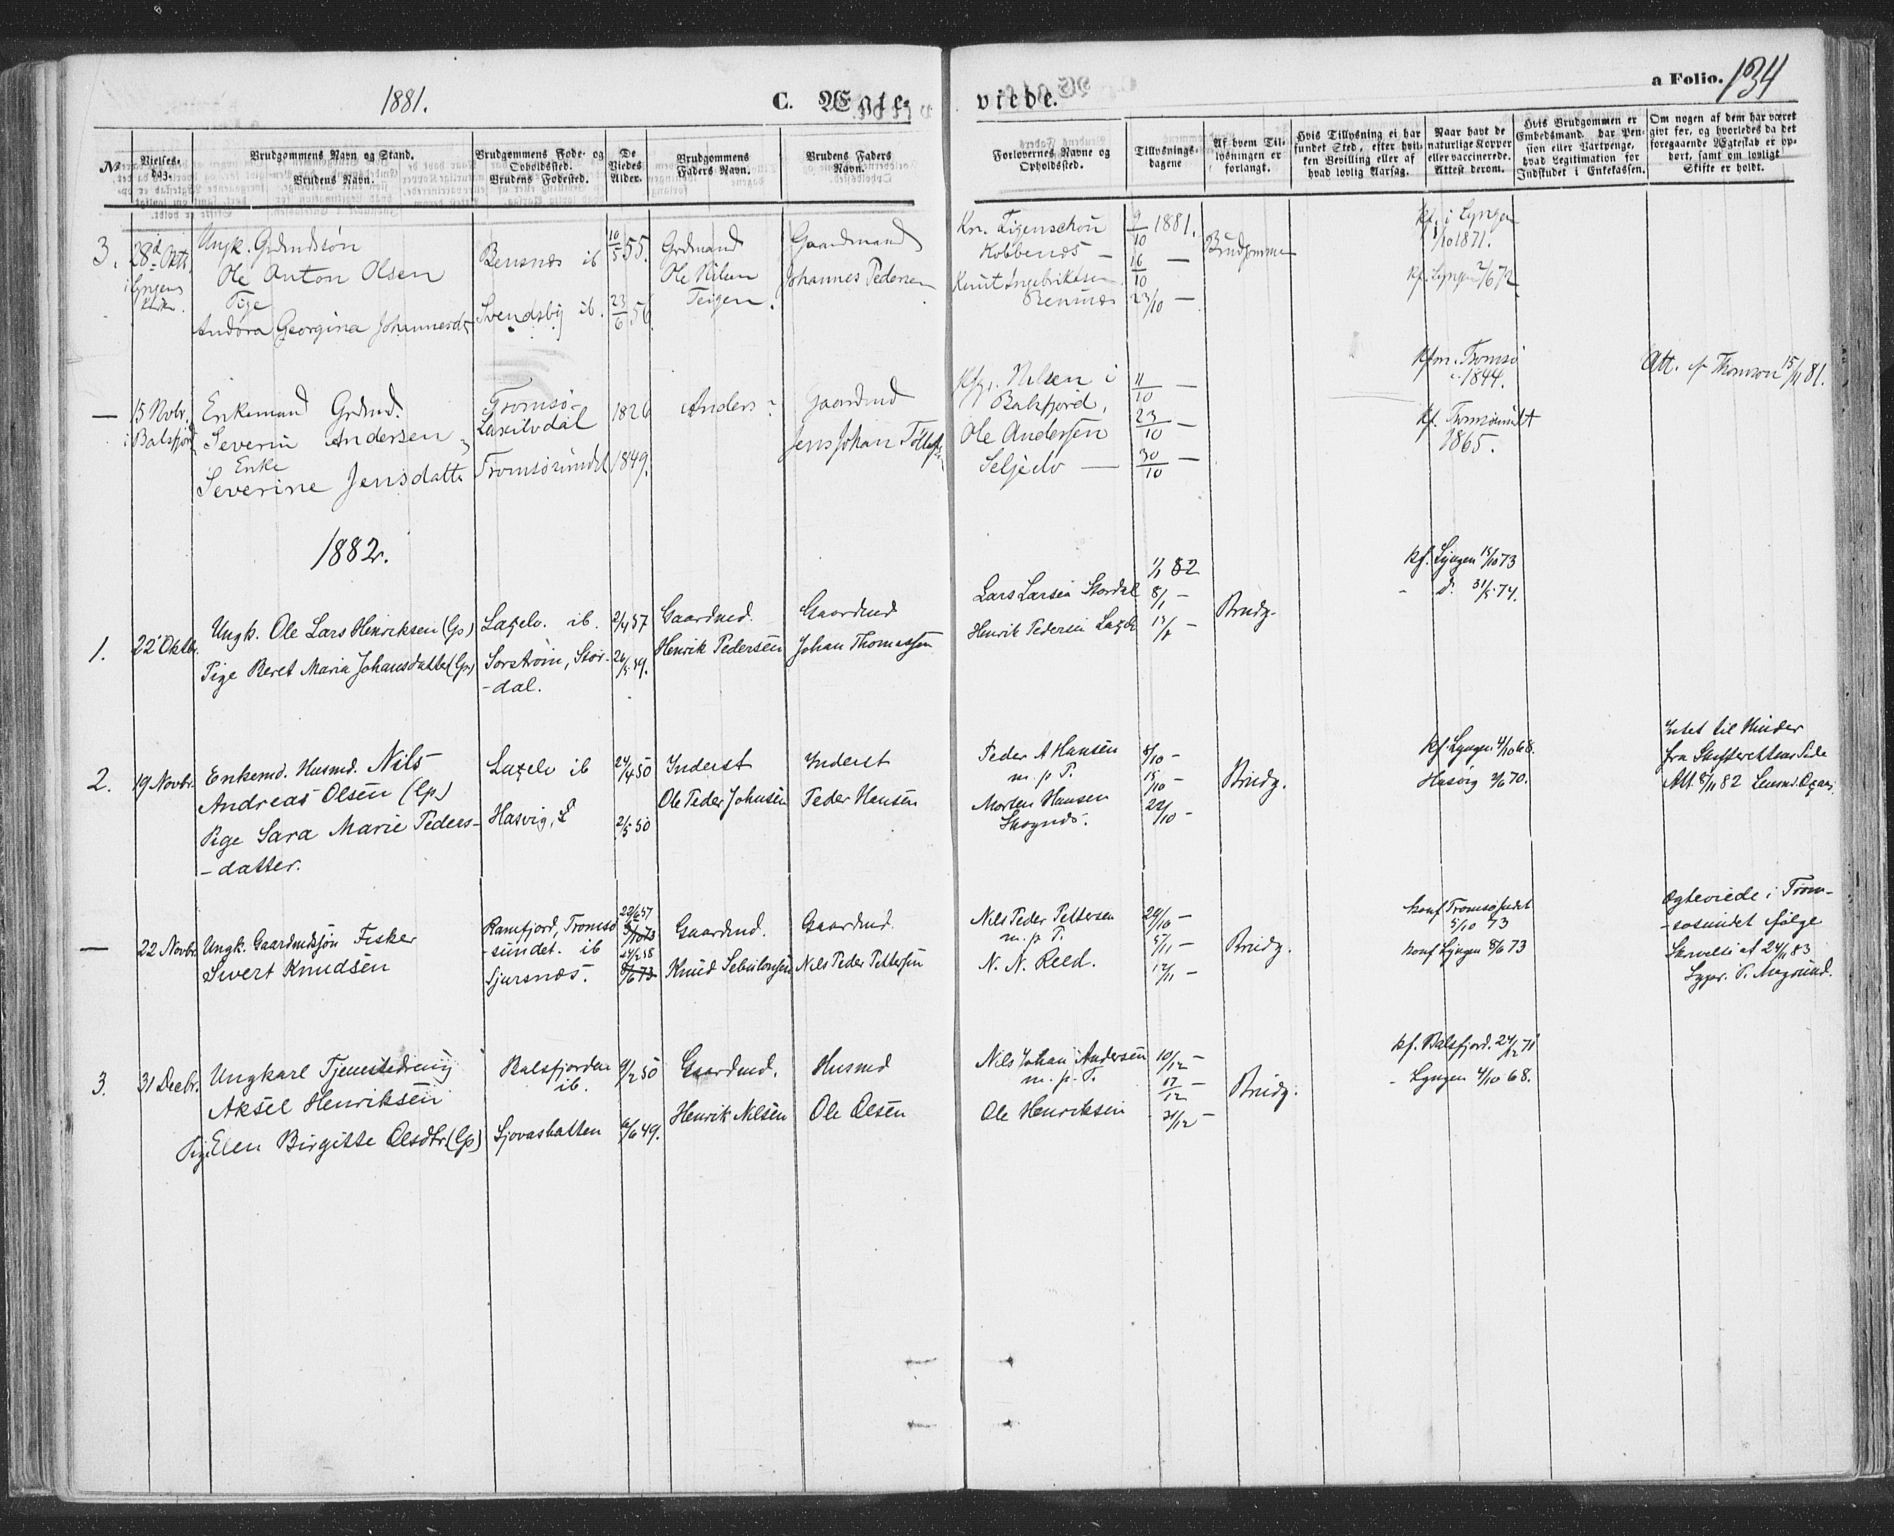 1881.
C. Ægte-
viede.
a Folio. 134
No
Vielses-
dag.
Brudgommens Navn og Stand.
Brudens Navn.
Brudgommens Føde- og
Opholdssted.
Brudens Fødested.
De
Viedes
Alder.
Brudgommens
Faders Navn.
Brudens Faders
Navn.
Forlovernes Navne og
Opholdssted.
Tillysnings-
dagene
Af hvem Til-
lysningen er
forlangt.
Hvis Tillysning ei har
fundet Sted, efter hvil-
ken Bevilling eller af
hvad lovlig Aarsag.
Naar havt de
naturlige Kopper
eller vaccinerede.
Attest derom.
Hvis Brudgommen er
Embedsmand, har Pen-
sion eller Vartpenge,
hvad Legitimation for
Indskudet i Enkekassen.
Om nogen af dem har været
gift før, og hvorledes da det
foregaaende Ægteskab er op-
hørt, samt om lovligt
Skifte er holdt.
3.
28d Oktb.
i Lyngens
Kirke.
Ungk. Grdmdssøn
Ole Anton Olsen
Pige
Andora Georgina Johannesd.
Bensnæs ib
Svendsby ib.
16/5 55.
23/6 56
Grdmand
Ole Nilsen
Teigen.
Gaardmand
Johannes Pedersen
Kobbenæs —
Knut Ingebriktsen
Rennæs
9/10 1881.
16/10 —
23/10 —
Brudgommen
kf. i Lyngen
1/10 1871.
kf. Lyngen 2/6 72
—
15 Novbr.
i Balsfjord
Enkemand Grdmd.
Severin Andersen
Enke
Severine Jensdatter
Tromsø-
Laxelvdal
Tromsøsundet
1826
1849.
Anders ?
Gaardmd
Jens Johan
Nilsen i
Balsfjord,
Ole Andersen
Seljelv —
11/10 —
23/10 —
30/10 —
kfm. Tromsø
1844.
kf. Tromsøsundt
1865.
Att. f. Thomson 15/11 81.
1882.
1.
22 Oktbr.
Ungk. Ole Lars Henriksen (Gp)
Pige Beret Maria Johansdatter (Gp)
Laxelv. ib.
Sørstrøm, Stor-
-dal.
2/4 57
26/5 59.
Gaardmd.
Henrik Pedersen
Gaardmd
Johan Thomassen
Lars Larsen Stordal
Henrik Pedersen Laxelv
1/1 82
8/1 —
15/1 —
Brudg.
kf. Lyngen 15/10 73
- d. 31/5 74.
2.
19 Novbr.
Enkemd. Husmd. Nils
Andreas Olsen (Gp)
Pige Sara Marie Peders-
-datter.
Laxelv ib
Hasvig, L
24/4 50
2/5 50
Inderst
Ole Peder Johnsen
Inderst
Peder Hansen
Peder A Hansen
m. p P.
Morten Hansen
Skognæs.
8/10 —
15/10 —
22/10 —
Brudg.
kf. Lyngen 4/10 68.
Hasvig 3/6 70.
Intet til Hinder
fra Skifterettens Side
Att. 8/11 82 Lensmd.
—
22 Novbr.
Ungk. Gaardmdssøn Fisker
Sivert Knudsen
Ramfjord, Tromsø
-sundet. ib
Sjursnæs.
22/6 57
Gaardmd.
Gaardmd.
Nils Peder Pettersen
Nils Peder Pettersen
m. p T.
N. N. Reld.
29/10 —
5/11 —
12/11 —
Brudg.
konf Tromsøsundet
5/10 73
konf Lyngen 8/6 73
Ægteviede i Trom-
-søsundet ifølge
Skrivelse af 24/11 83
3.
31 Decbr.
Ungkarl Tjenestedreng
Aksel Henriksen
Pige Elen Birgitte Olsdtr (Gp)
Balsfjorden
ib.
Sjovashatten
9/2 50
6/6 49.
Gaardmd.
Henrik Nilsen
Husmd
Ole Olsen
Nils Johan Andersen
m. p. T.
Ole Henriksen
10/12 —
17/12 —
31/12 —
Brudg.
kf. Balsfjord. 24/12 71
- Lyngen 4/10 68.